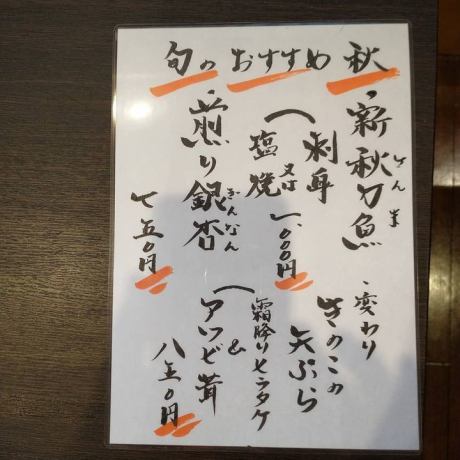 秋 旬のおすすめ
・新秋刀魚
さんま
(刺身
又は
塩焼
一、〇〇〇円
・煎り銀杏
ぎんなん
七五〇円
・変わり
きのこの
天ぷら
(霜降りヒラタケ
&
アワビ茸
八五〇円